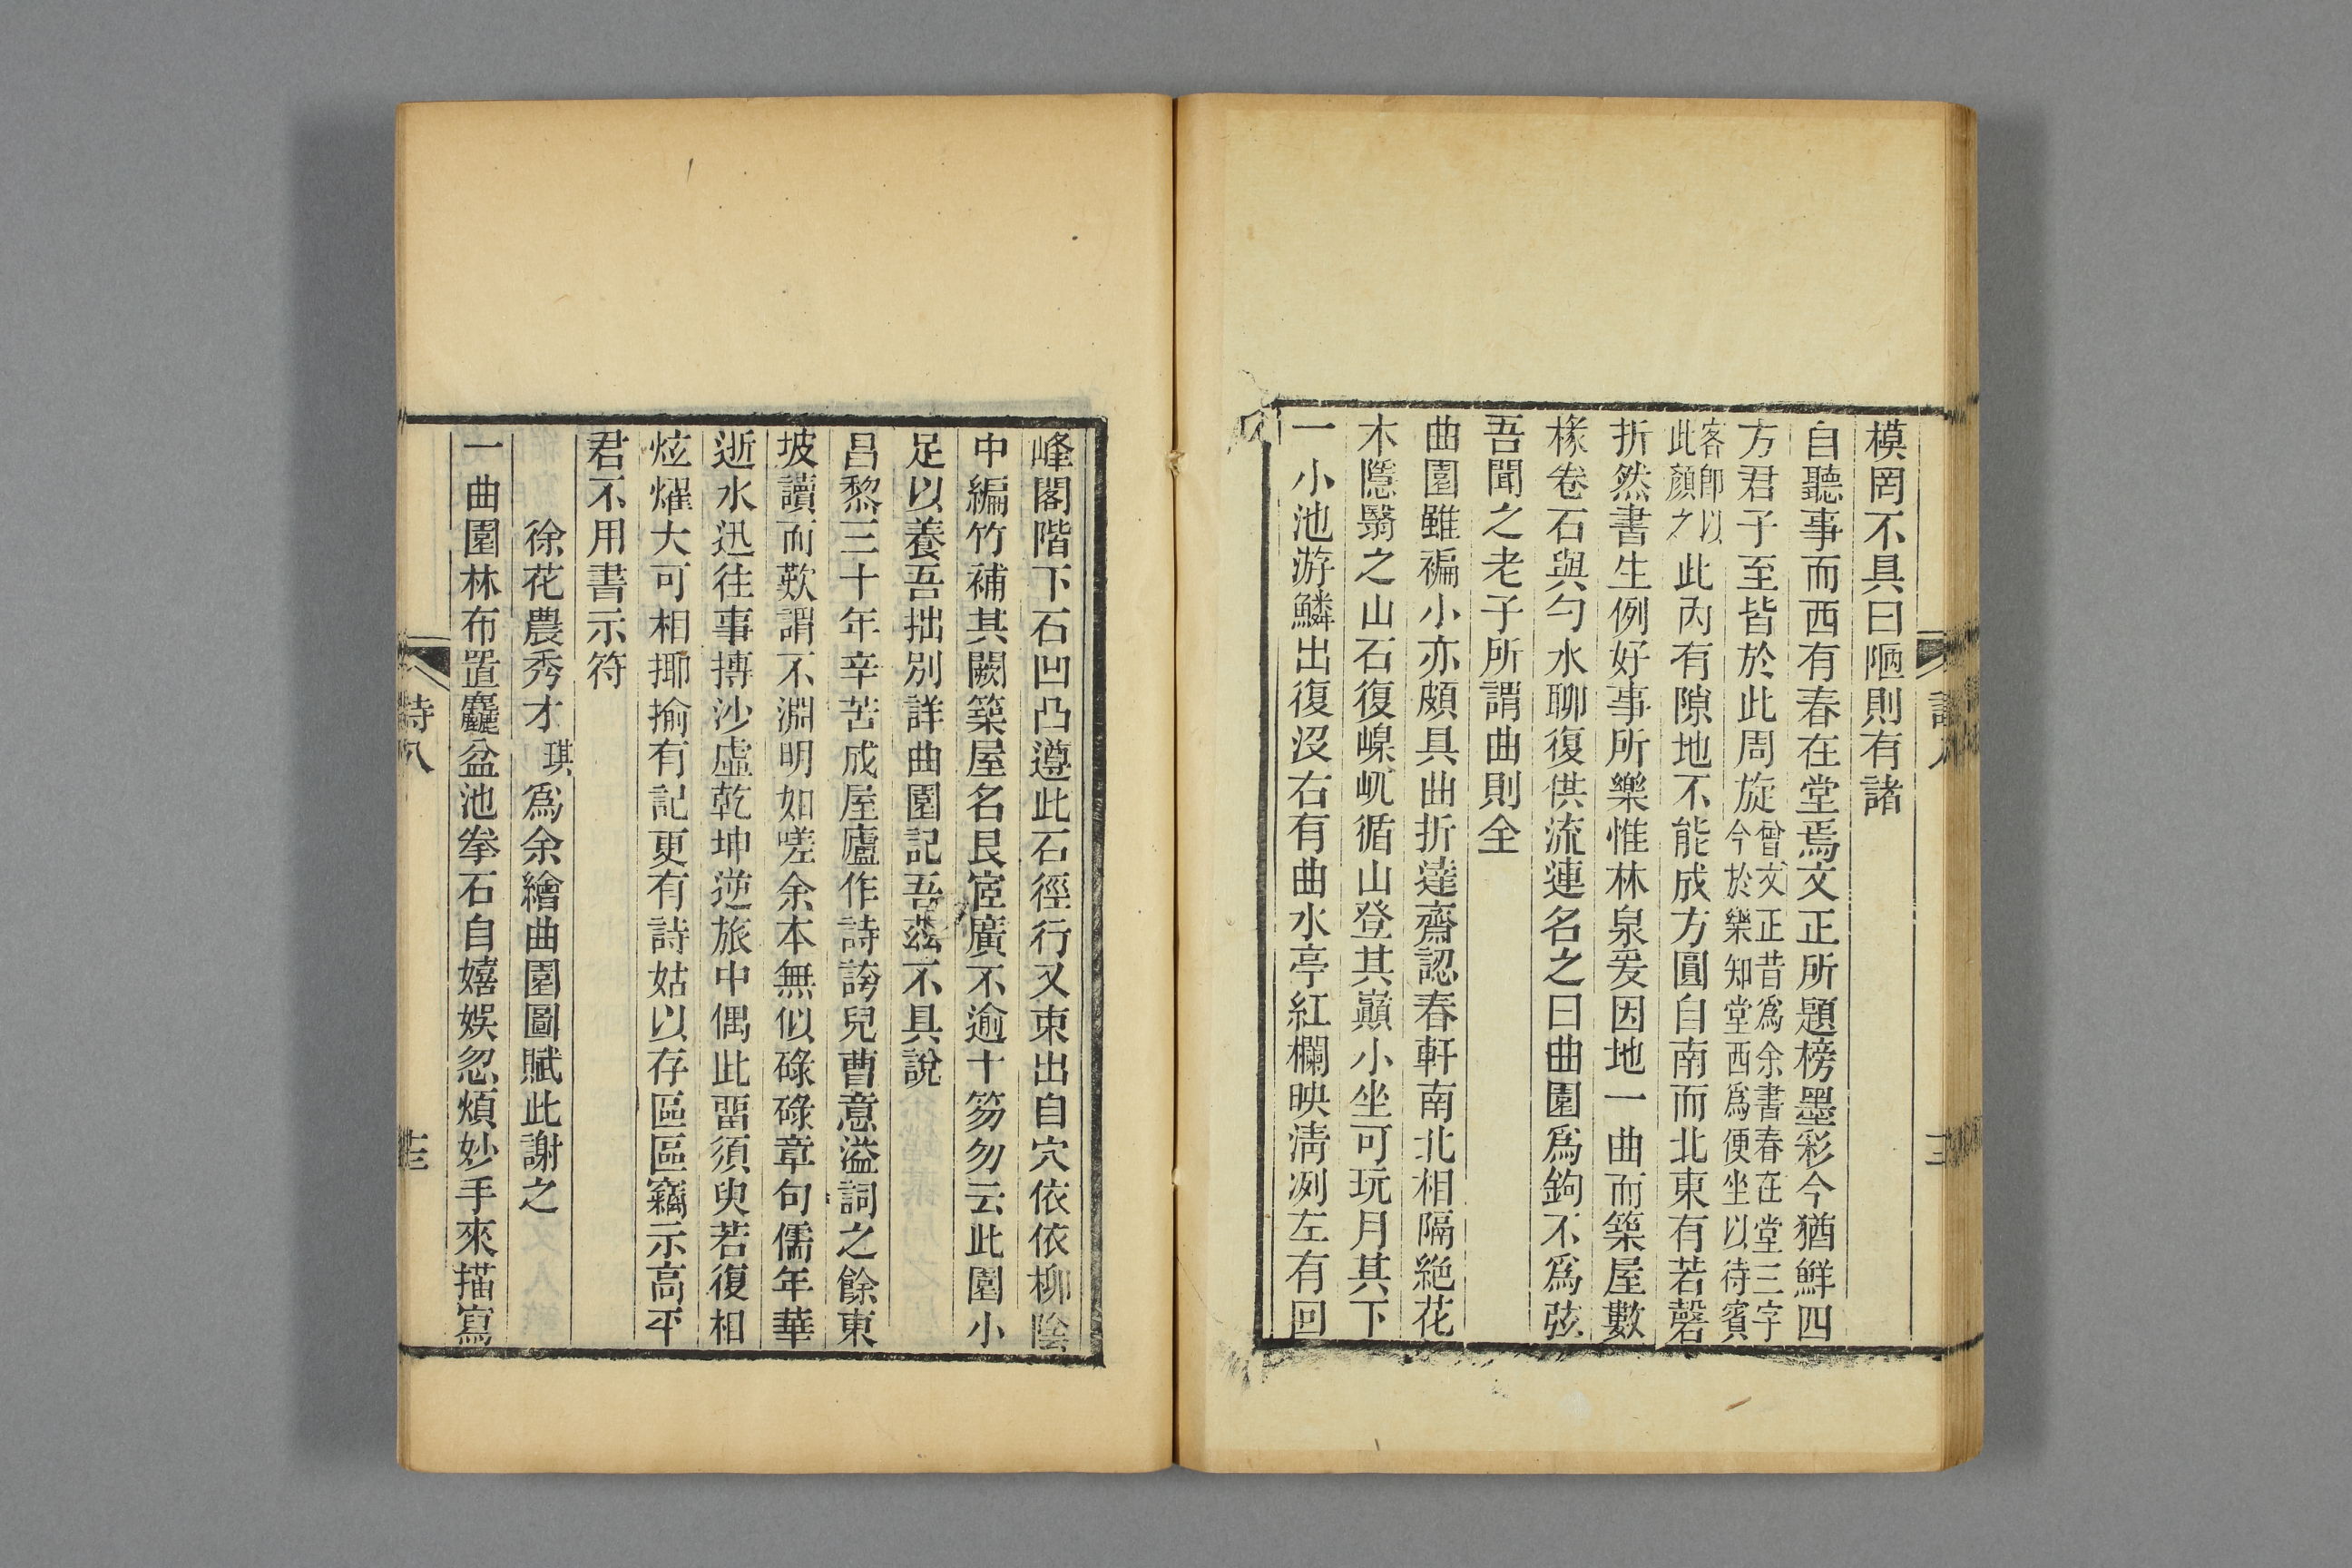 模罔不具曰陋則有諸
自聽事而西有春在堂焉文正所題榜墨彩今猶鮮四
方君子至皆於此周旋曾文正昔爲余書春在堂三字今於樂知堂西爲便坐以待賓
客卽以此顏之此內有隙地不能成方圓自南而北東有若磬
折然書生例好事所樂惟林泉爰因地一曲而築屋數
椽卷石與勺水聊復供流連名之曰曲園爲鉤不爲弦
吾聞之老子所謂曲則全
曲園雖褊小亦頗具曲折達齋認春軒南北相隔絶花
木隱翳之山石復嵲屼循山登其巔小坐可玩月其下
一小池游鱗出復沒右有曲水亭紅欄映淸冽左有回
峰閣階下石凹凸遵此石徑行又東出自穴依依柳陰
中編竹補其闕築屋名艮宧廣不逾十笏勿云此園小
足以養吾拙別詳曲園記吾茲不具說
昌黎三十年辛苦成屋廬作詩誇兒曹意溢詞之餘東
坡讀而歎謂不淵明如嗟余本無似碌碌章句儒年華
逝水迅往事摶沙虛乾坤逆旅中偶此畱須臾若復相
炫燿大可相揶揄有記更有詩姑以存區區竊示高平
君不用書示符
徐花農秀才琪爲余繪曲園圖賦此謝之
一曲園林布置麤盆池拳石自嬉娛忽煩妙手來描寫
詩八